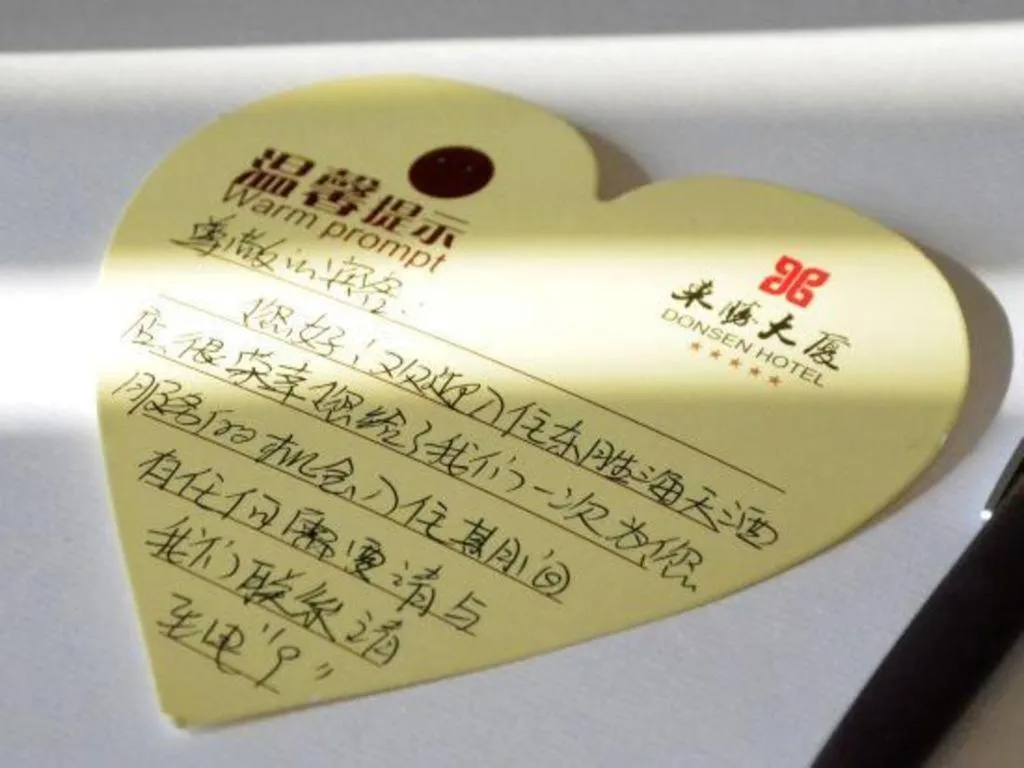 温馨提示
Warm prompt
東勝大厦
DONSEN HOTEL
尊敬的宾客:
您好!欢迎入住东胜海天酒
店,很荣幸您给了我们一次为您
服务的机会,入住期间
有任何需要请与
我们联系请
致电"9"